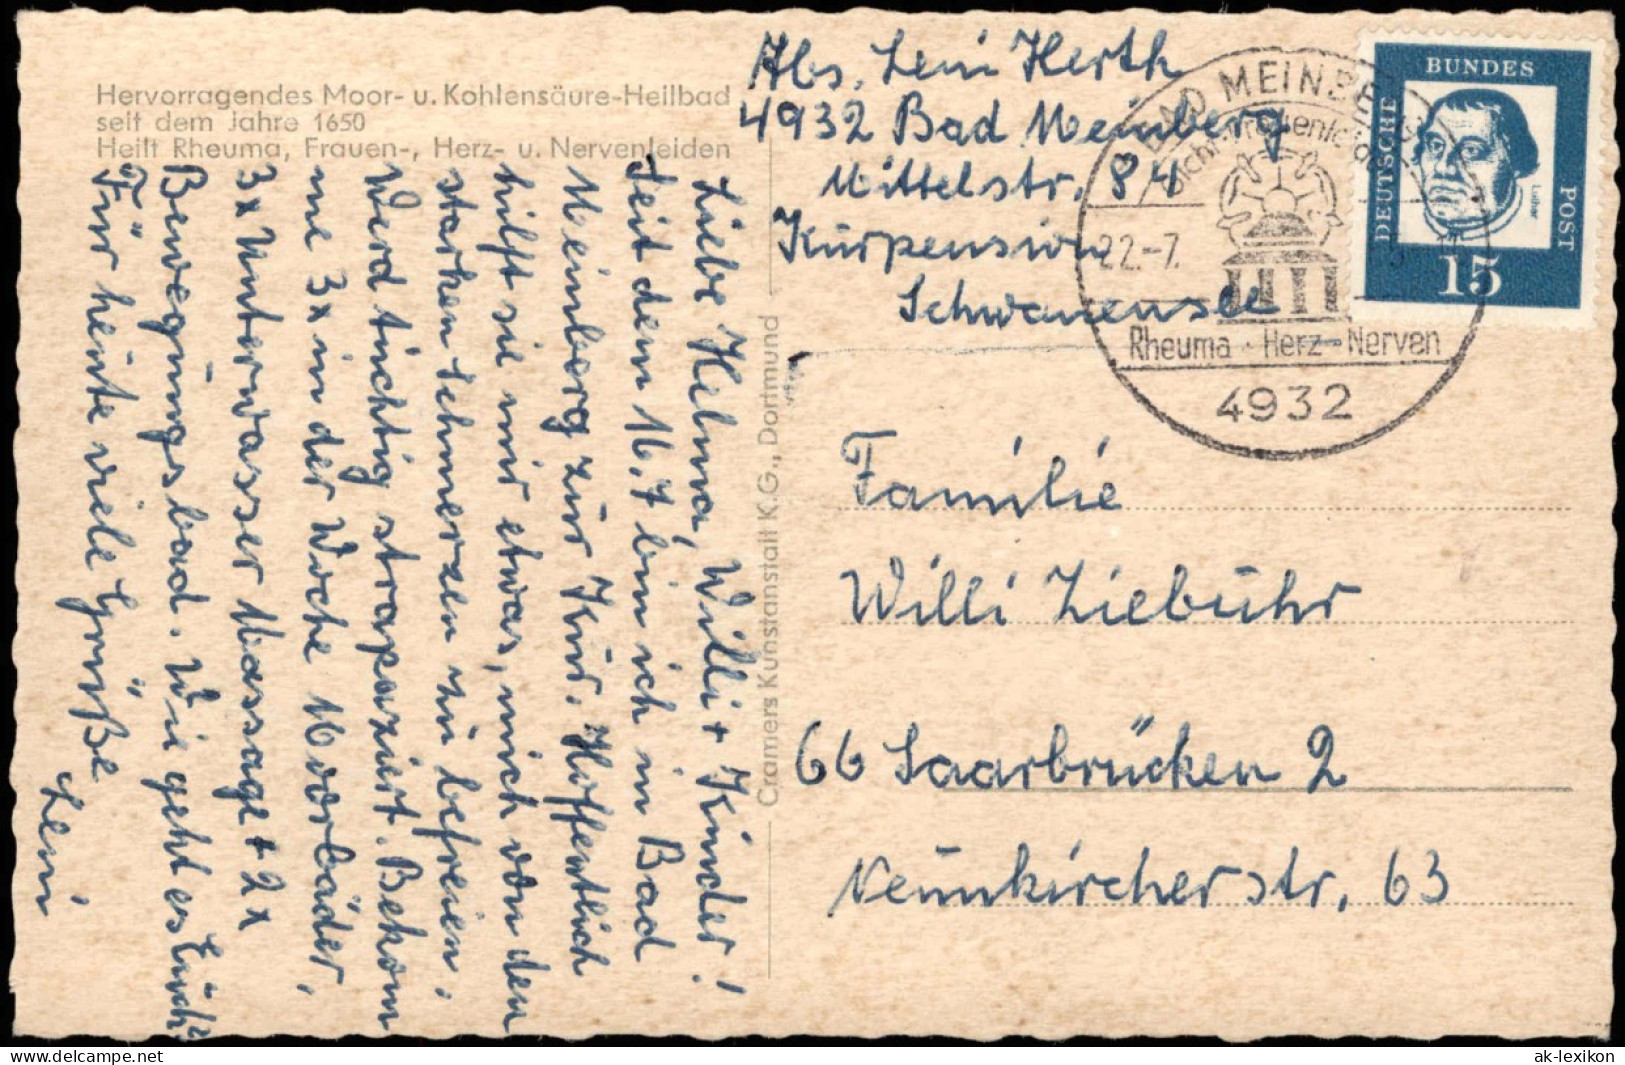 Hervorragendes Moor- u. Kohlensäure-Heilbad
seit dem Jahre 1650
Heilt Rheuma, Frauen-, Herz- u. Nervenleiden
Liebe Helma, Willi + Kinder!
Seit dem 16.7 bin ich in Bad
Meinberg zur Kur. Hoffentlich
hilft sie mir etwas, mich von den
starken Schmerzen zu befreien.
Werd tüchtig strapaziert. Bekom
me 3x in der Woche Moorbäder,
3x Unterwasser Massage + 2x
Bewegungsbad. Wie geht es Euch?
Für heute viele Grüße
Leni
Cramers Kunstanstalt K.G., Dortmund
Abs. Leni Herth
4932 Bad Meinberg
Mittelstr. 84
Kurpension
Schwanensee
BAD MEINBERG
22.-7.
Rheuma - Herz - Nerven
4932
BUNDES
DEUTSCHE
POST
Luther
15
Familie
Willi Ziebuhr
66 Saarbrücken 2
Neunkircherstr. 63
delcampe.net
ak-lexikon